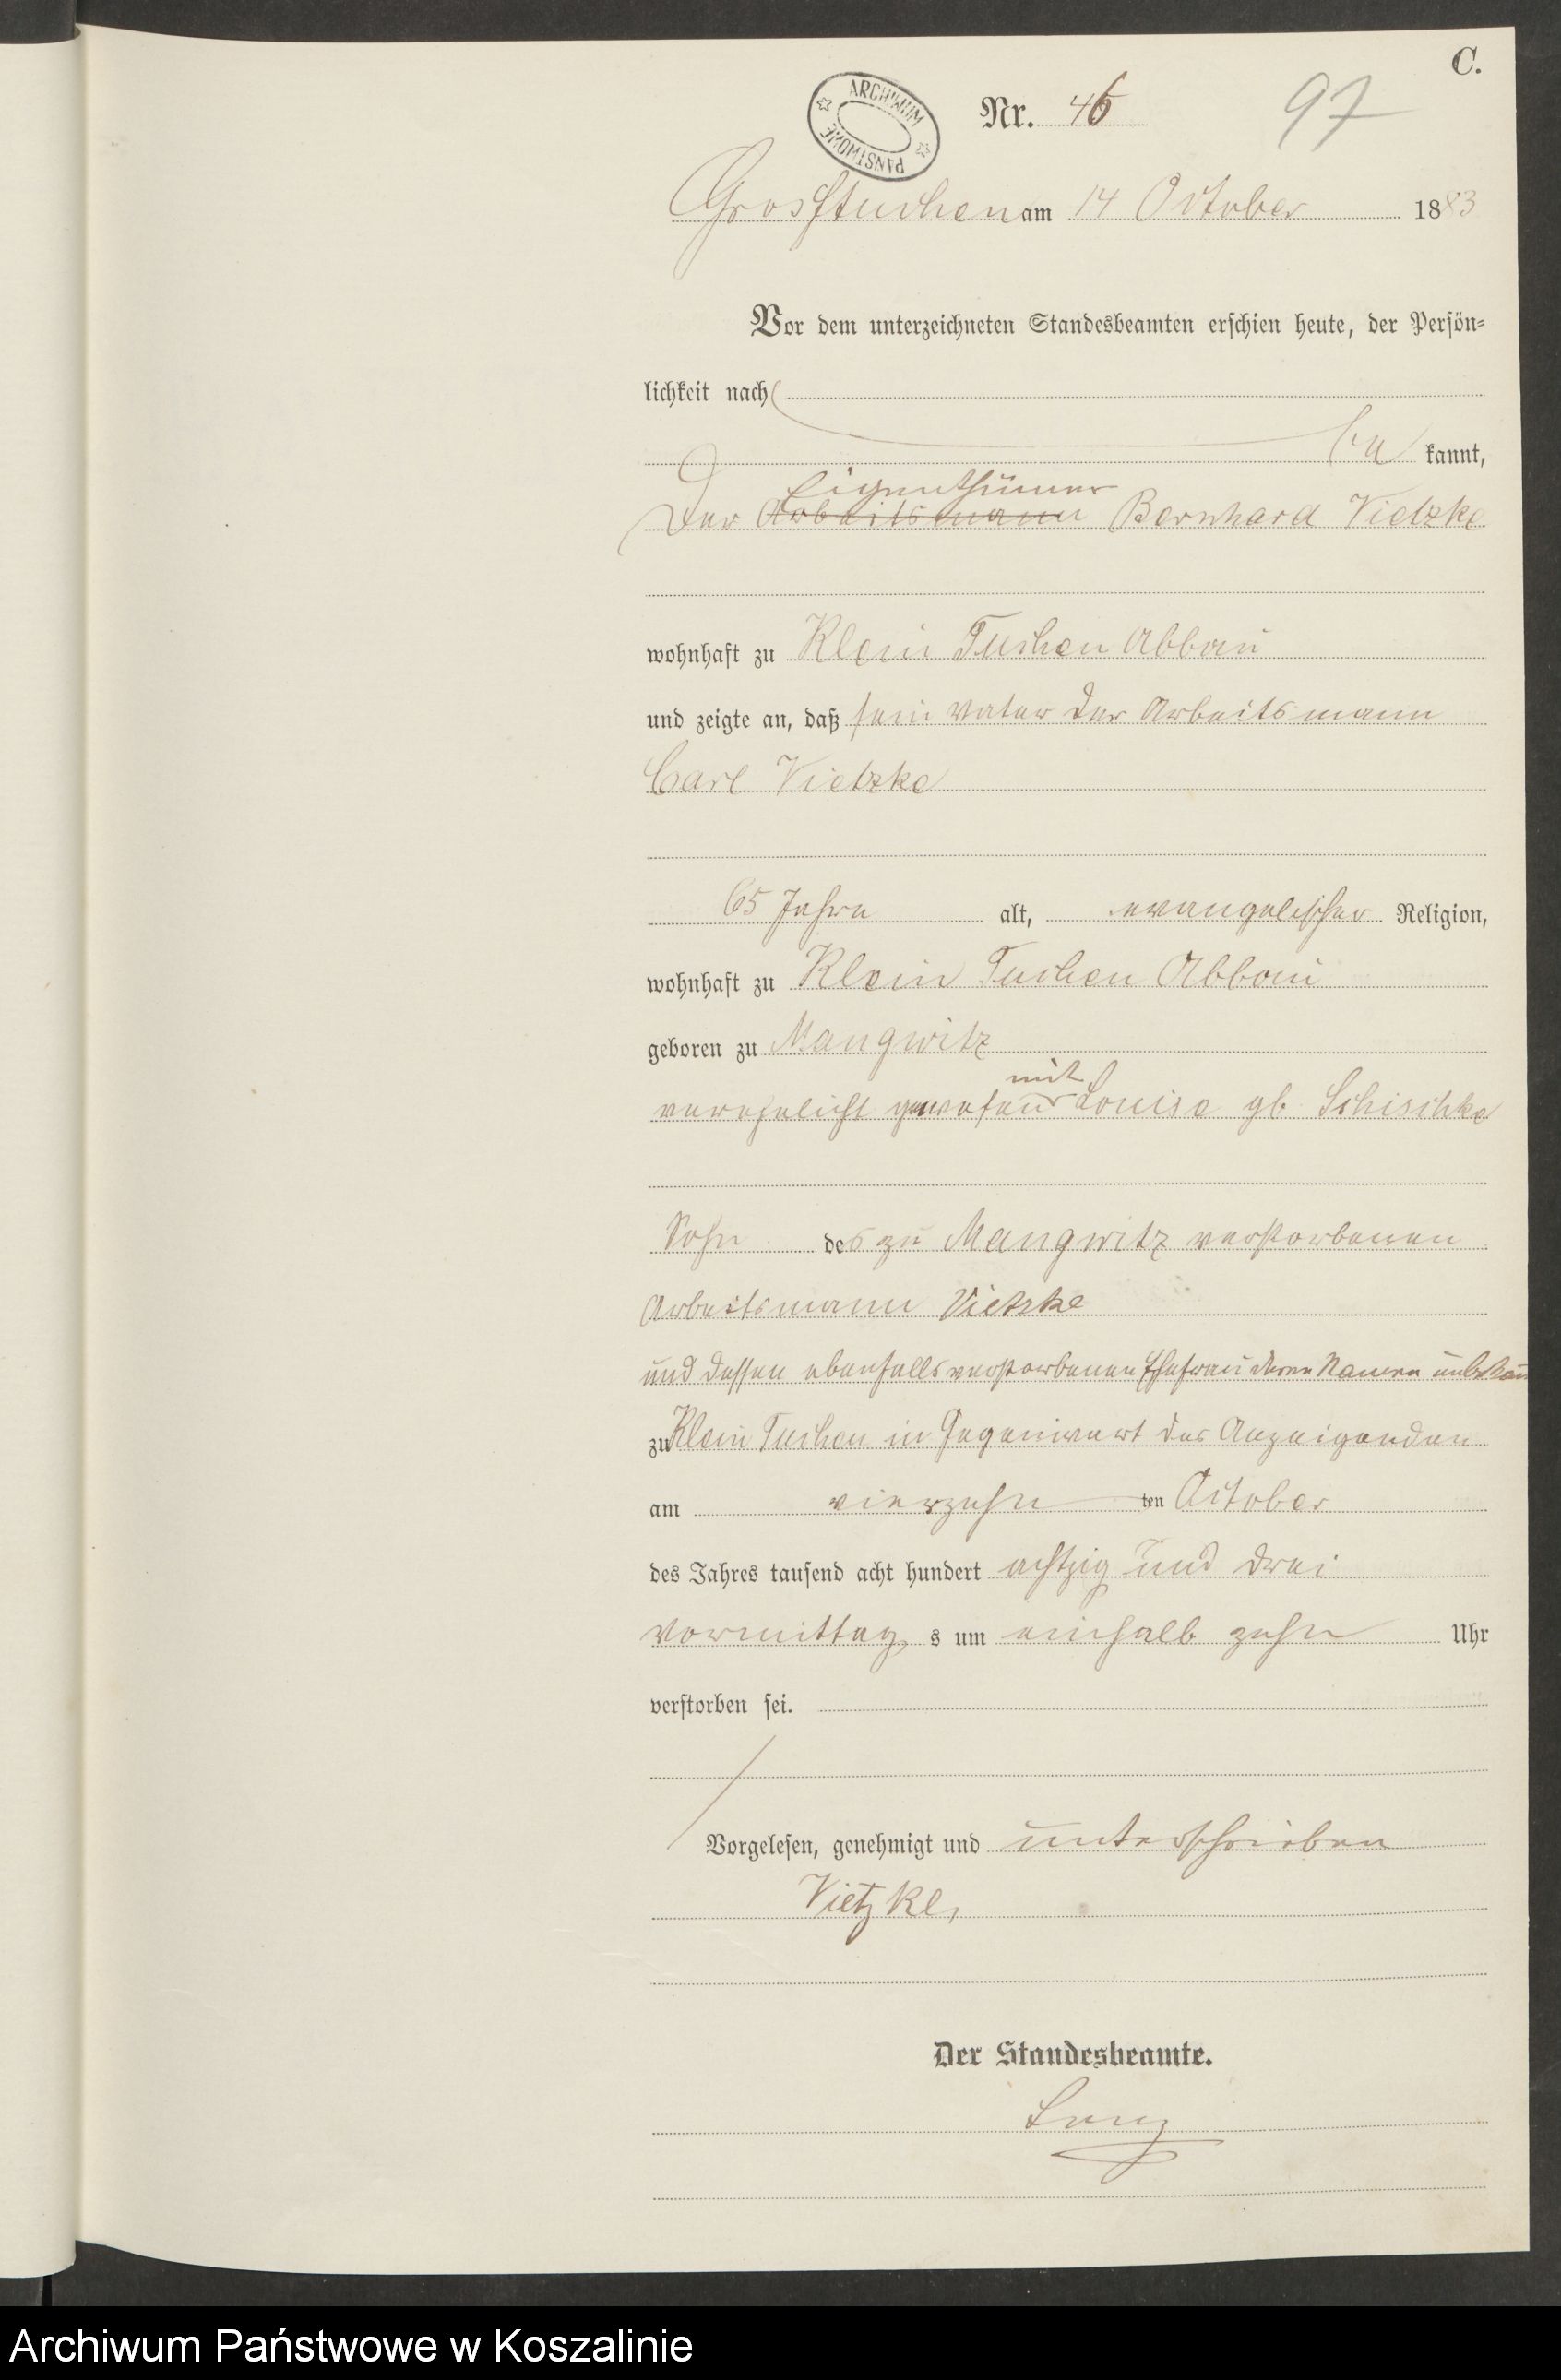 C.
ARCHIWUM PAŃSTWOWE
Nr. 46
97
Gross Tuchen am 14 October 1883
Vor dem unterzeichneten Standesbeamten erschien heute, der Persön-
lichkeit nach
be kannt,
Eigenthümer
Der Arbeitsmann Bernhard Vietzke
wohnhaft zu Klein Tuchen Abbau
und zeigte an, daß sein Vater der Arbeitsmann
Carl Vietzke
65 Jahre alt, evangelischer Religion,
wohnhaft zu Klein Tuchen Abbau
geboren zu Mangwitz
mit
verehelicht gewesen Louise gb. Schischke
Sohn des zu Mangwitz verstorbenen
Arbeitsmann Vietzke
und dessen ebenfalls verstorbenen Ehefrau deren Namen unbekan
zu Klein Tuchen in Gegenwart des Anzeigenden
am vierzehn ten October
des Jahres tausend acht hundert achtzig und drei
Vormittag s um einhalb zehn Uhr
verstorben sei.
Vorgelesen, genehmigt und unterschrieben
Vietzke,
Der Standesbeamte.
Archiwum Państwowe w Koszalinie